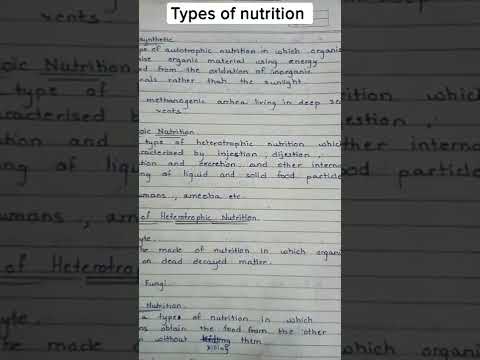 Types of nutrition
synthetic
pe of autotrophic nutrition in which organis
ise organic material using energy
ed from the oxidation of inorganic
cals rather than the sunlight
methanogenic archea living in deep sea
vents.
oic Nutrition
type of heterotrophic nutrition which
racterised by injestion, dijestion,
tion and excretion and other interna
ng of liquid and solid food particle
umans, ameoba etc.
of Heterotrophic Nutrition.
yte.
be made of nutrition in which organi
on dead decayed matter.
Fungi
Nutrition.
a types of nutrition in which
ms obtain the food from the other
n without them
killing